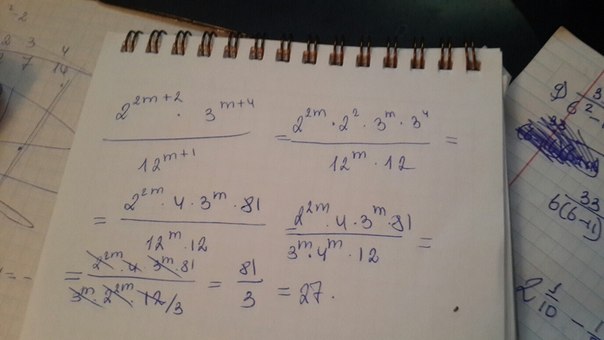 2^{2m+2} · 3^{m+4} / 12^{m+1} = 2^{2m} · 2^2 · 3^m · 3^4 / 12^m · 12 =
= 2^{2m} · 4 · 3^m · 81 / 12^m · 12 = 2^{2m} · 4 · 3^m · 81 / 3^m · 4^m · 12 =
= 2^{2m} · 4 · 3^m · 81 / 3^m · 2^{2m} · 12/3 = 81 / 3 = 27.
2 3 4
7 14
33
6(6-11)
2 1/10 -